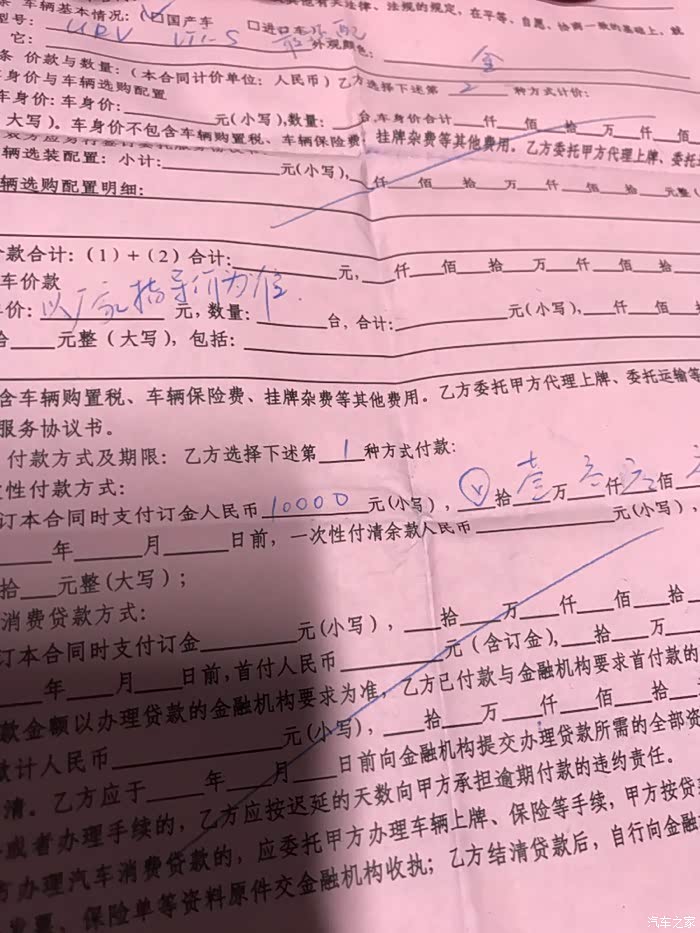 有关法律、法规的规定，在平等、自愿、协商一致的基础上，就
车辆基本情况： ☑国产车 □进口车
型号： URV
它： 外观颜色： 金
条 价款与数量：（本合同计价单位：人民币）乙方选择下述第 2 种方式计价：
车身价与车辆选购配置
车身价：车身价： 元（小写），数量： 台，车身价合计 仟 佰 拾 万 仟 佰
大写）。车身价不包含车辆购置税、车辆保险费、挂牌杂费等其他费用。乙方委托甲方代理上牌、委托
辆选装配置：小计： 元（小写）， 仟 佰 拾 万 仟 佰 拾 元整
辆选购配置明细：
款合计：（1）+（2）合计： 元， 仟 佰 拾 万 仟 佰 拾
车价款
价：以厂家指导价为准 元，数量： 台，合计： 元（小写）， 仟 佰
拾 元整（大写），包括：
含车辆购置税、车辆保险费、挂牌杂费等其他费用。乙方委托甲方代理上牌、委托运输等
服务协议书。
付款方式及期限：乙方选择下述第 1 种方式付款：
性付款方式：
订本合同时支付订金人民币 10000 元（小写）， 拾 壹 万 仟 佰
年 月 日前，一次性付清余款人民币 元（小写），
拾 元整（大写）；
消费贷款方式：
订本合同时支付订金 元（小写）， 拾 万 仟 佰 拾
年 月 日前，首付人民币 元（含订金）， 拾 万
款金额以办理贷款的金融机构要求为准，乙方已付款与金融机构要求首付款的
计人民币 元（小写）， 拾 万 仟 佰 拾
清。乙方应于 年 月 日前向金融机构提交办理贷款所需的全部资
或者办理手续的，乙方应按迟延的天数向甲方承担逾期付款的违约责任。
方办理汽车消费贷款的，应委托甲方办理车辆上牌、保险等手续，甲方按贷
发票、保险单等资料原件交金融机构收执；乙方结清贷款后，自行向金融
汽车之家